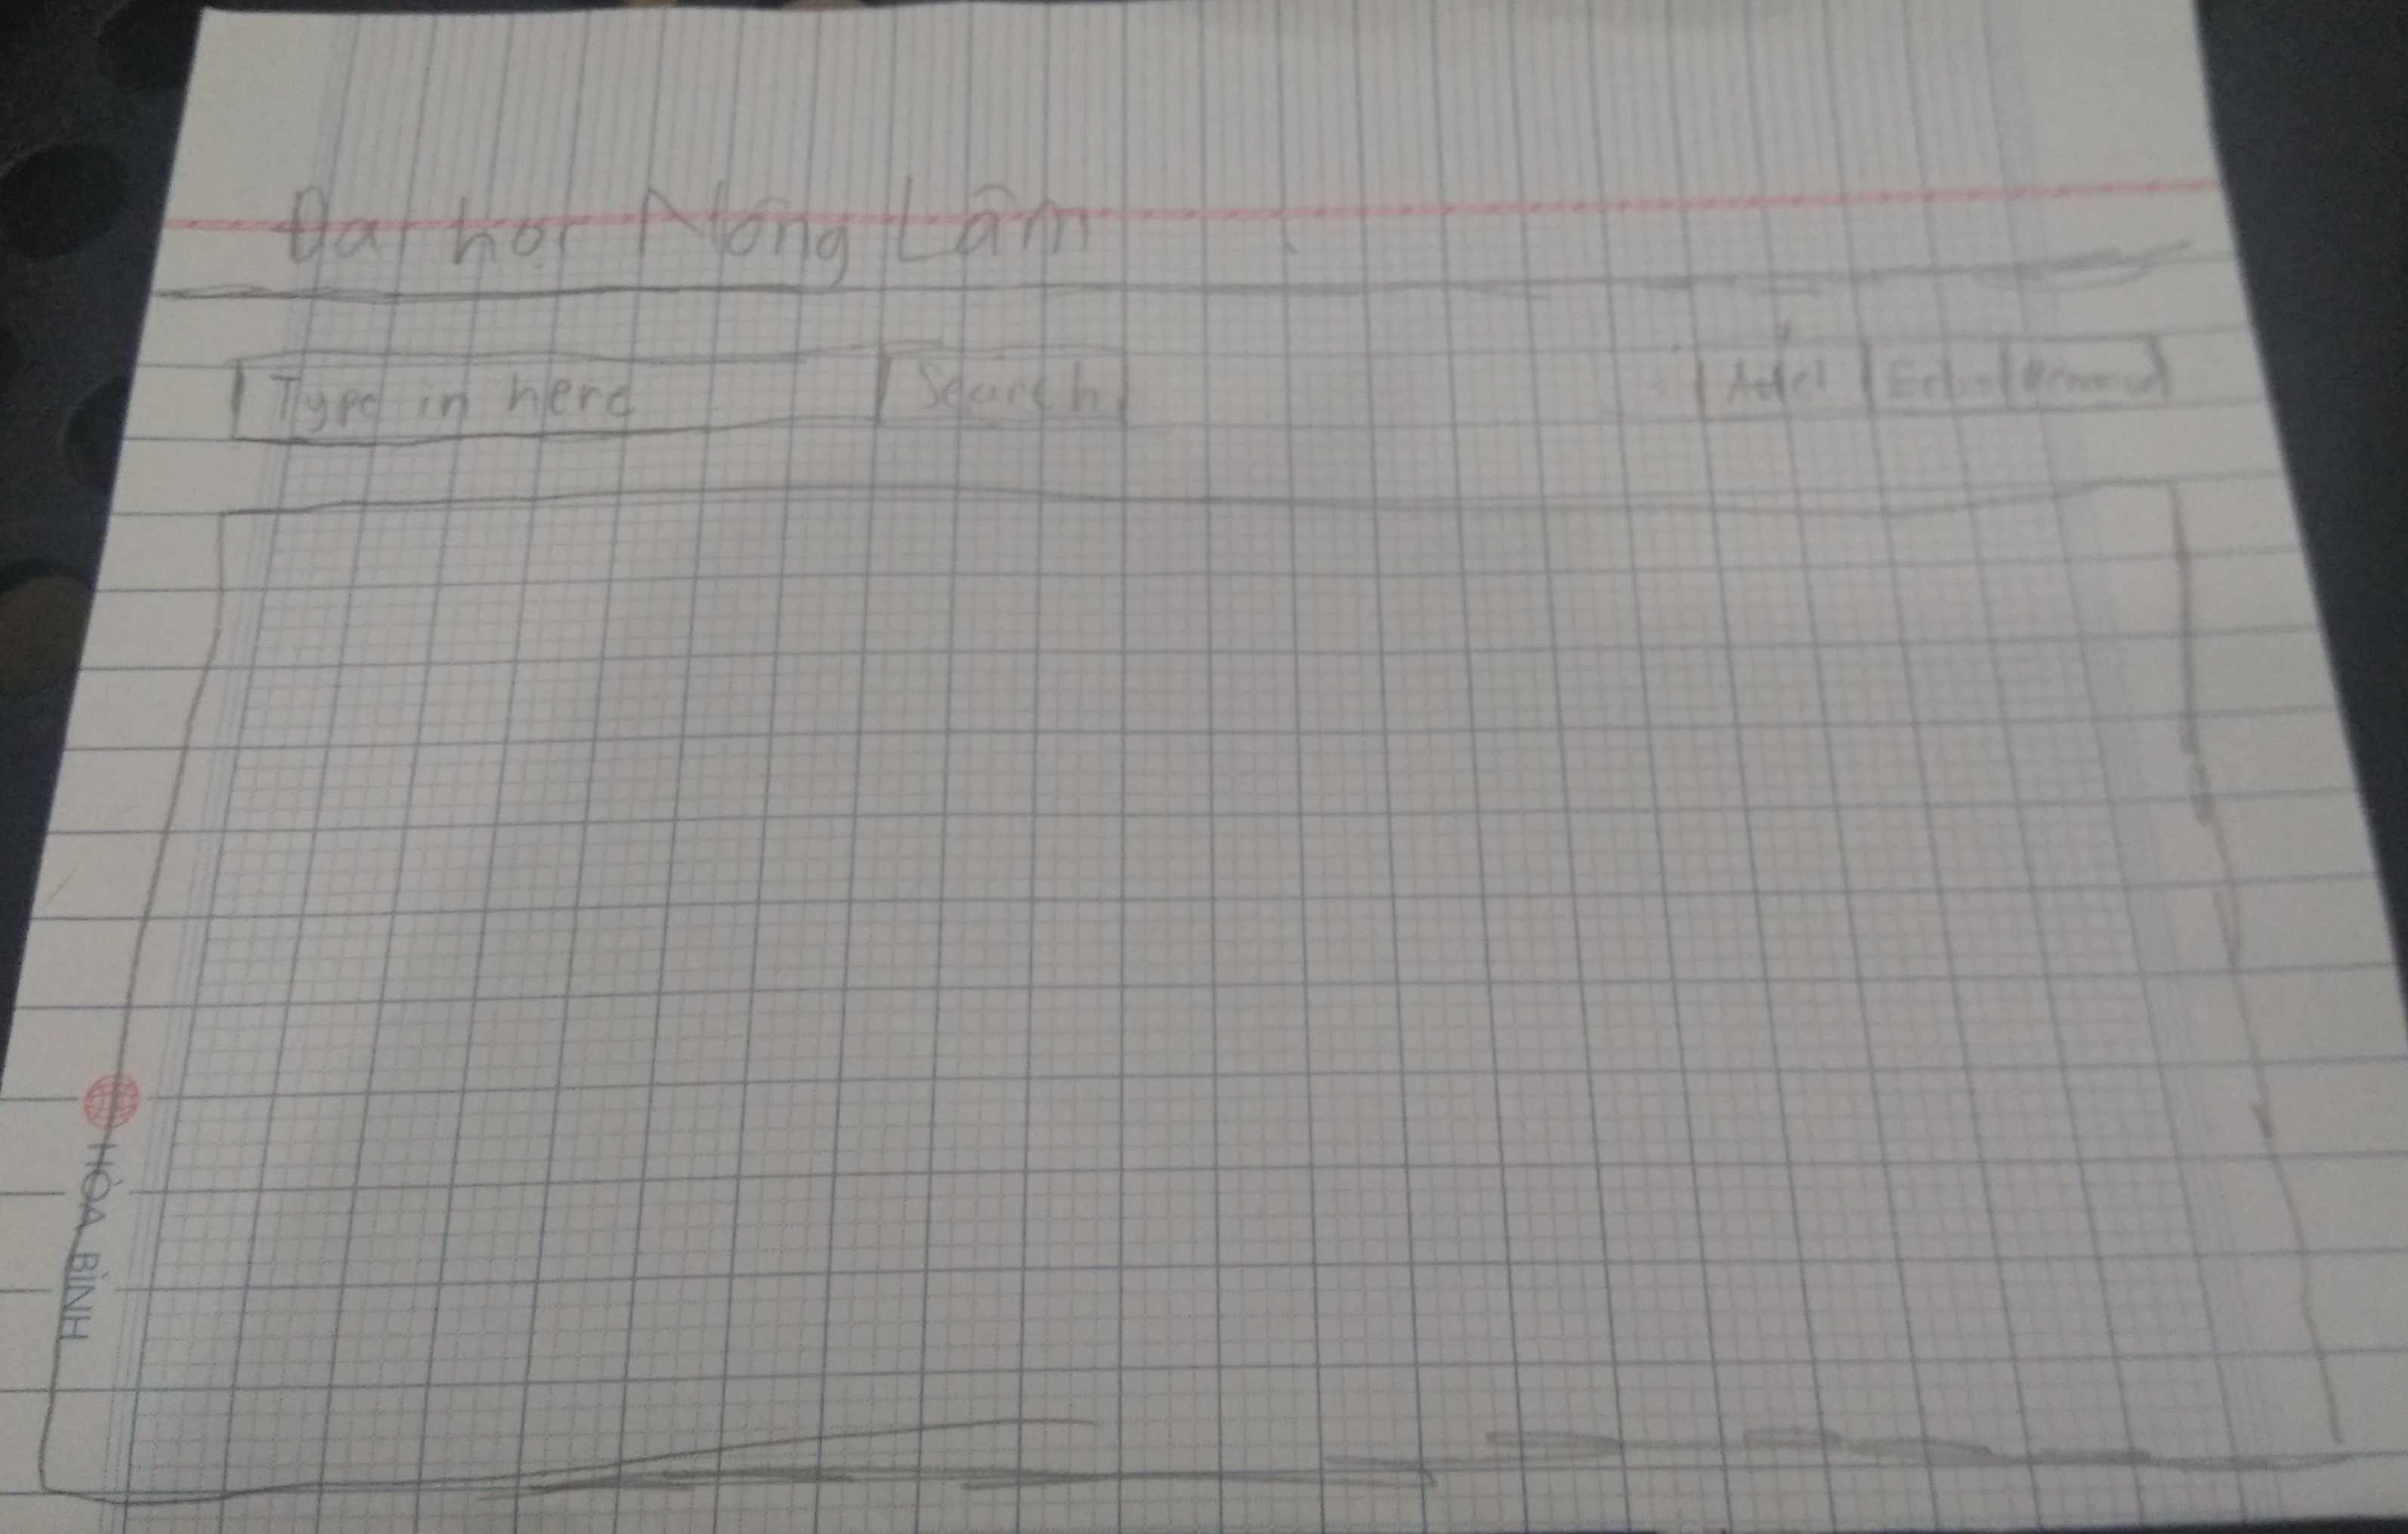 Đại học Nông Lâm
Type in here Search Add Edit Remove
HÒA BÌNH